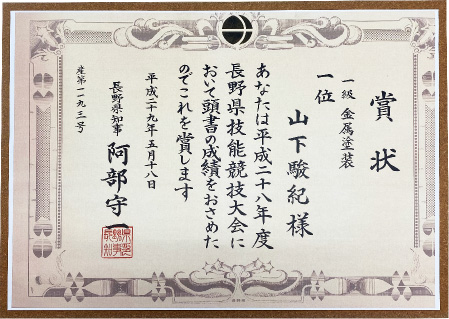 賞状
一級 金属塗装
一位
山下駿紀様
あなたは平成二十八年度
長野県技能競技大会に
おいて頭書の成績をおさめた
のでこれを賞します
平成二十九年五月十八日
長野県知事 阿部守一
産第一一九三号